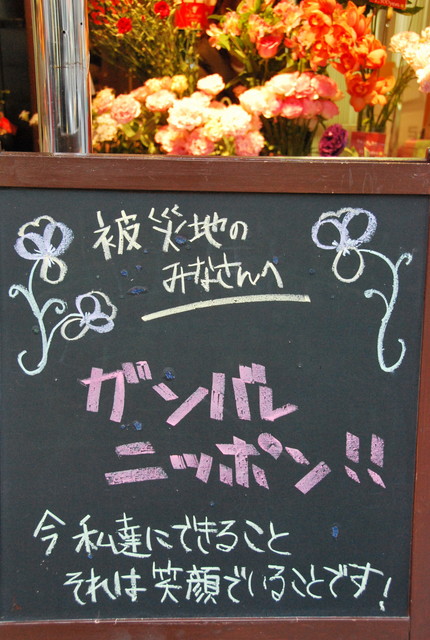 被災地の
みなさんへ
ガンバレ
ニッポン!!
今私達にできること
それは笑顔でいることです!